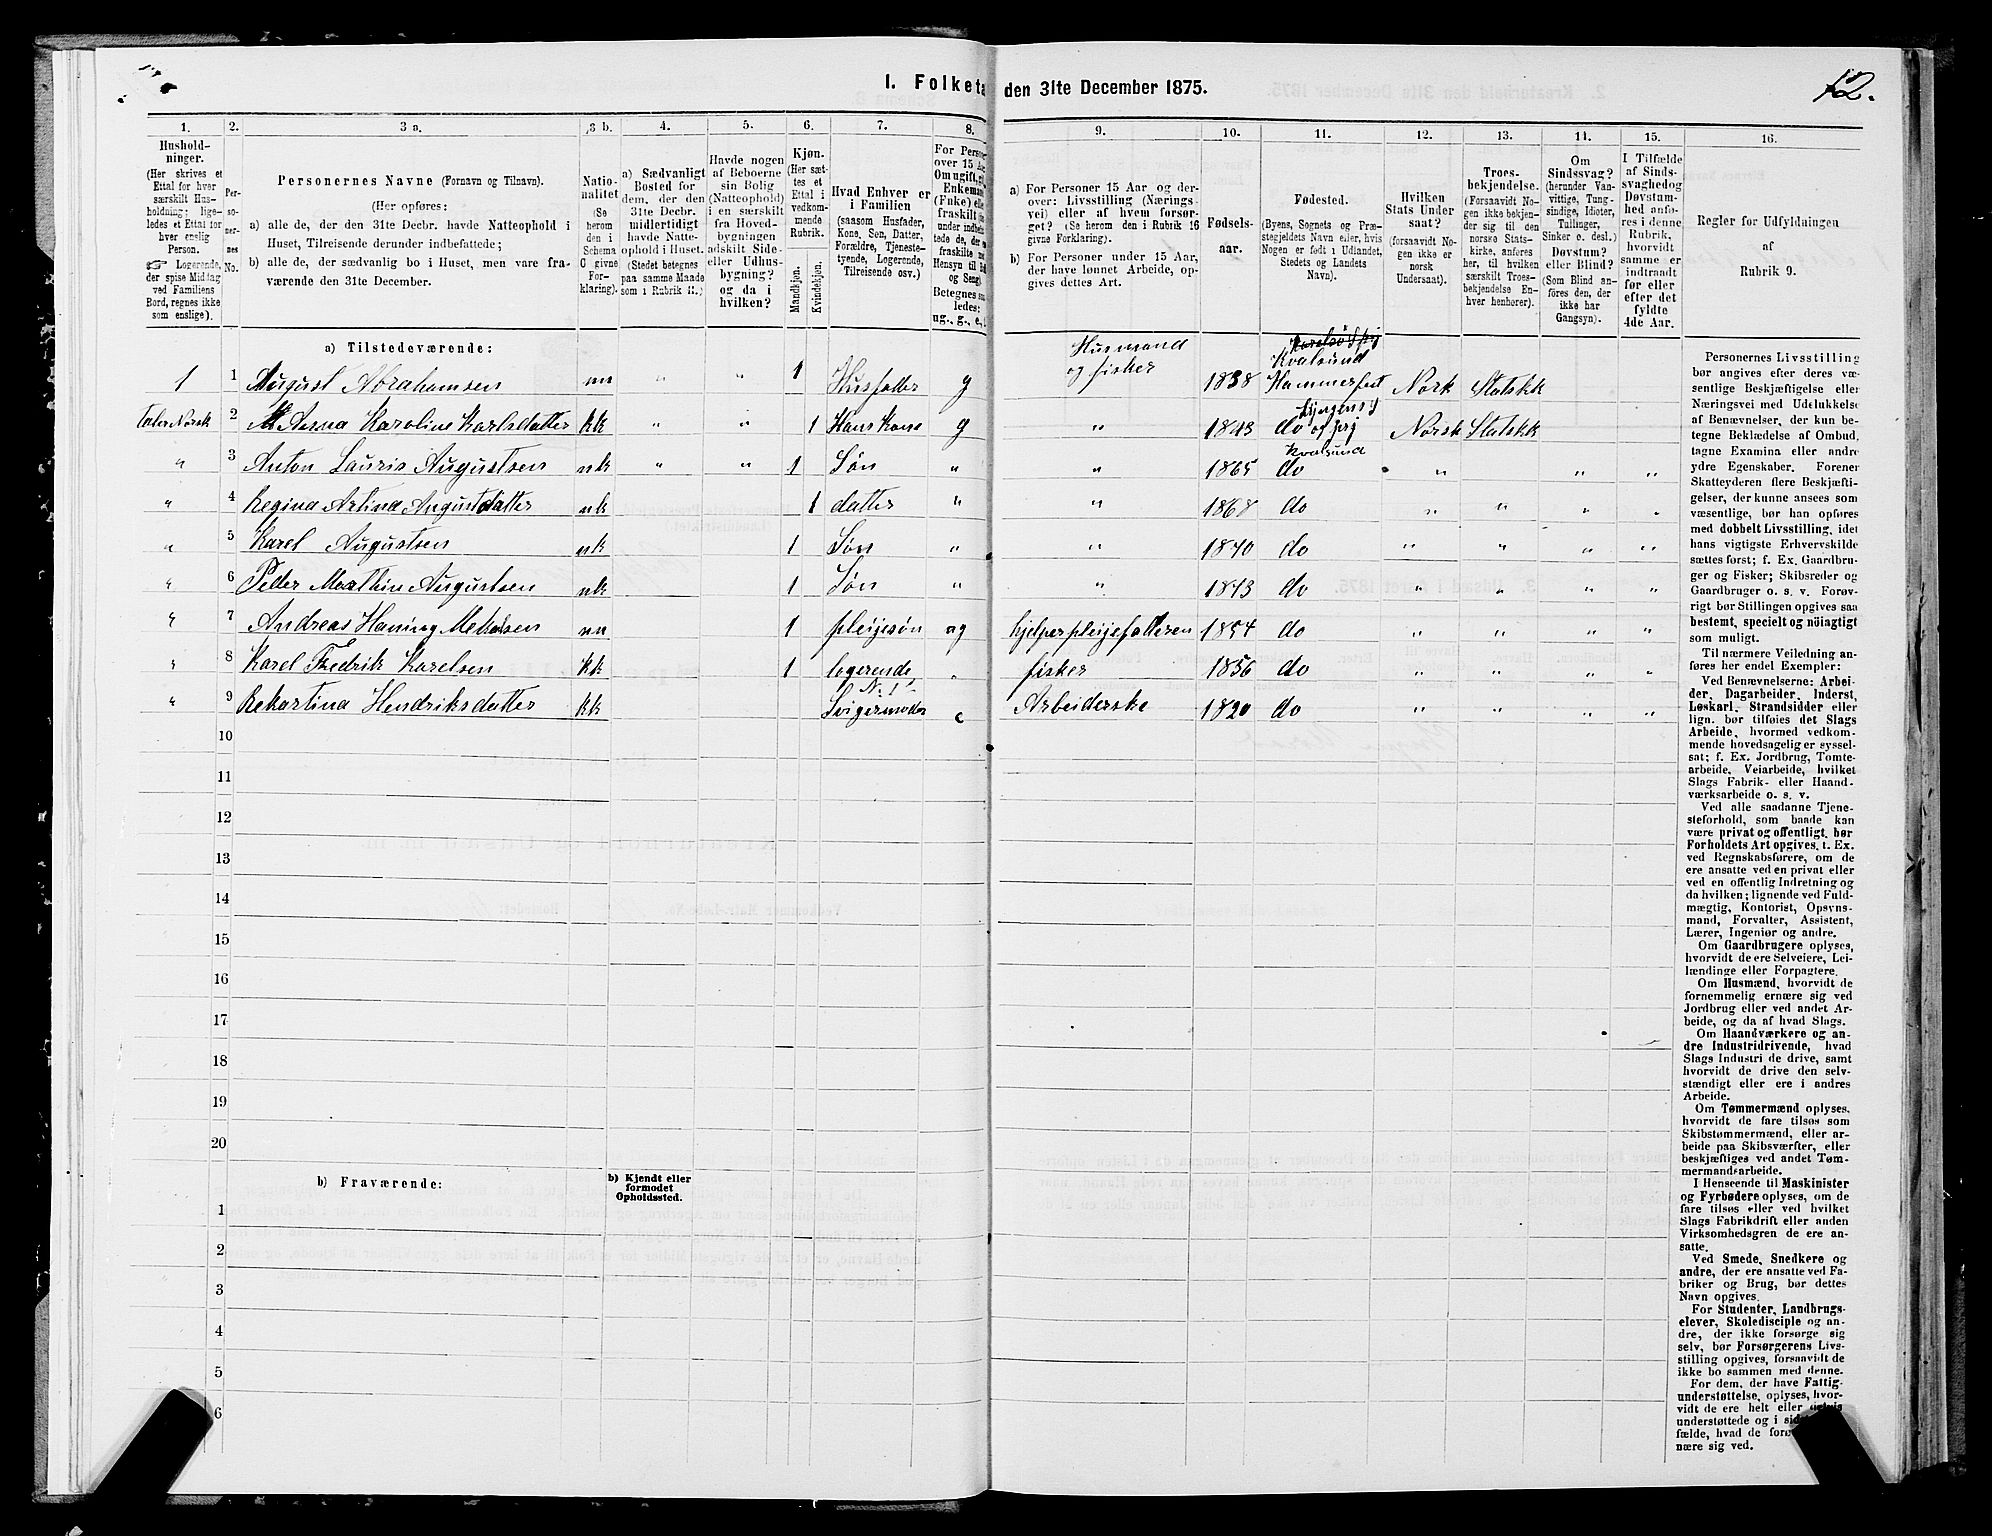 I. Folketæ
den 31te December 1875.
12.
1.
2.
3 a.
3 b.
4.
5.
6.
7.
8.
9.
10.
11.
12.
13.
14.
15.
16.
Hushold-
ninger.
(Her skrives et
Ettal for hver
særskilt Hus-
holdning; lige-
ledes et Ettal for
hver enslig
Person.
☞ Logerende,
der spise Middag
ved Familiens
Bord, regnes ikke
som enslige).
Per-
so-
ner-
nes
No.
Personernes Navne (Fornavn og Tilnavn).
(Her opføres:
a) alle de, der den 31te Decbr. havde Natteophold i
Huset, Tilreisende derunder indbefattede;
b) alle de, der sædvanlig bo i Huset, men vare fra-
værende den 31te December.
Natio-
nalitet
(Se
herom
den i
Schema
O givne
For-
klaring).
a) Sædvanligt
Bosted for
dem, der den
31te Decbr.
midlertidigt
havde Natte-
ophold i Huset.
(Stedet betegnes
paa samme Maade
som i Rubrik 11.)
Havde nogen
af Beboerne
sin Bolig
(Natteophold)
i en særskilt
fra Hoved-
bygningen
adskilt Side-
eller Udhus-
bygning?
og da i
hvilken?
Kjøn.
(Her sæt-
tes et
Ettal i
vedkom-
mende
Rubrik.
Mandkjøn.
Kvindekjøn.
Hvad Enhver er
i Familien
(saasom Husfader,
Kone, Søn, Datter,
Forældre, Tjeneste-
tyende, Logerende,
Tilreisende osv.)
For Person
over 15 Aa
Om ugift, gi
Enkemand
(Enke) elle
fraskilt
under indbefat-
tede de, der
fraskilte
Hensyn til
og Seng)
Betegnes saa
ledes:
ug., g., e., f.
a) For Personer 15 Aar og der-
over: Livsstilling (Nærings-
vei) eller af hvem forsør-
get? (Se herom den i Rubrik 16
givne Forklaring).
b) For Personer under 15 Aar,
der have lønnet Arbeide, op-
gives dettes Art.
Fødsels-
aar.
Fødested.
(Byens, Sognets og Præ-
stegjeldets Navn eller, hvis
Nogen er født i Udlandet,
Stedets og Landets
Navn).
Hvilken
Stats Under
saat?
(forsaavidt No-
gen ikke er
norsk
Undersaat).
Troes-
bekjendelse.
(Forsaavidt No-
gen ikke bekjen-
der sig til den
norske Stats-
kirke, anføres
her, til hvilken
særskilt Troes-
bekjendelse En-
hver henhører).
Om
Sindssvag?
(herunder Van-
vittige, Tung-
sindige, Idioter,
Tullinger,
Sinker o. desl.)
Døvstum?
eller Blind?
(Som Blind an-
føres den, der
ikke har
Gangsyn).
I Tilfælde
af Sinds-
svaghed og
Døvstum-
hed anfø-
res i denne
Rubrik,
hvorvidt
samme er
indtraadt
før eller
efter det
fyldte
4de Aar.
Regler for Udfyldningen
af
Rubrik 9.
a) Tilstedeværende:
1 1 August Abrahamsen nn " " 1 Husfader g Husmand og fisker 1838 Kvalsund Hammerfest Norsk Statskk
Taler Norsk 2 Anna Karoline Karlsdatter kk " " 1 Hans Kone g " 1843 do og prj Norsk Statskk
" 3 Anton Lauris Augustsen nk " " 1 Søn " " 1865 Kvalsund do " " "
" 4 Regina Artina Augustdatter nk 1 datter " " 1868 do " " " "
" 5 Karel Augustsen nk 1 Søn " " 1840 do " " " "
" 6 Peder Marthin Augustsen nk 1 Søn " " 1843 do " " " "
" 7 Andreas Haning nn 1 pleijesøn ug hjelper pleijefatteren 1854 do " " " "
" 8 Karel Fredrik Karelsen kk 1 logerende " fisker 1856 do " " " "
" 9 Rekartina Hendriksdatter kk No. 1 Svigermoder e Arbeiderske 1820 do " " " "
10
11
12
13
14
15
16
17
18
19
20
b) Fraværende:
b) Kjendt eller
formodet
Opholdssted.
1
2
3
4
5
6
Personernes Livsstilling
bør angives efter deres væ-
sentlige Beskjæftigelse eller
Næringsvei med Udelukkelse
af Benævnelser, der kun be-
tegne Beklædelse af Ombud,
tagne Examina eller andre
ydre Egenskaber. Forener
Skatteyderen flere Beskjæfti-
gelser, der kunne ansees som
væsentlige, bør han opføres
med dobbelt Livsstilling, idet
hans vigtigste Erhvervskilde
sættes først; f. Ex. Gaardbru-
ger og Fisker; Skibsreder og
Gaardbruger o. s. v. Forøv-
rigt bør Stillingen opgives saa
bestemt, specielt og nöiagtigt
som muligt.
Til nærmere Veiledning an-
føres her endel Exempler:
Ved Benævnelserne: Arbei-
der, Dagarbeider, Inderst,
Løskarl, Strandsidder eller
lign. bør tilføies det Slags
Arbeide, hvormed vedkom-
mende hovedsagelig er syssel-
sat; f. Ex. Jordbrug, Tomte-
arbeide, Veiarbeide, hvilket
Slags Fabrik- eller Haand-
værksarbeide o. s. v.
Ved alle saadanne Tjene-
steforhold, som baade kan
være privat og offentligt, bør
Forholdets Art opgives, f. Ex.
ved Regnskabsførere, om de
ere ansatte ved en privat eller
ved en offentlig Indretning og
da hvilken; lignende ved Fuld-
mægtig, Kontorist, Opsyns-
mand, Forvalter, Assistent,
Lærer, Ingeniør og andre.
Om Gaardbrugere oplyses,
hvorvidt de ere Selveiere, Lei-
lændinge eller Forpagtere.
Om Husmænd, hvorvidt de
fornemmelig ernære sig ved
Jordbrug eller ved andet Ar-
beide, og da af hvad Slags.
Om Haandværkere og an-
dre Industridrivende, hvad
Slags Industri de drive, samt
hvorvidt de drive den selv-
stændigt eller ere i andres
Arbeide.
Om Tømmermænd oplyses,
hvorvidt de fare tilsøs som
Skibstømmermænd, eller ar-
beide paa Skibsværfter, eller
beskjæftiges ved andet Tøm-
mermandsarbeide.
I Henseende til Maskinister
og Fyrbødere oplyses, om de
fare tilsøs eller ved hvilket
Slags Fabrikdrift eller anden
Virksomhedsgren de ere an-
satte.
Ved Smede, Snedkere og
andre, der ere ansatte ved Fa-
briker og Brug, bør dettes
Navn opgives.
For Studenter, Landbrugs-
elever, Skoledisciple og an-
dre, der ikke forsørge sig
selv, bør Forsørgerens Livs-
stilling opgives, forsaavidt de
ikke bo sammen med denne.
For dem, der have Fattig-
understøttelse, oplyses, hvor-
vidt de ere helt eller delvis
understøttede og i sid
fælde, hvad de for
nære sig ved.